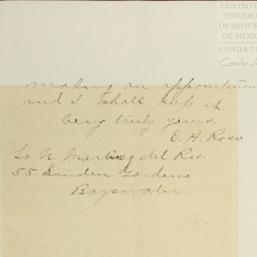 CENTRO D
ESTUDIO
DE HISTOR
DE MEXIC
FUNDACI
Carlos
making an appointmen
and I shall keep it
very truly yours.
E. H. Ross
To N. Martinez del Rio.
55 Linden Gardens
Bayswater.